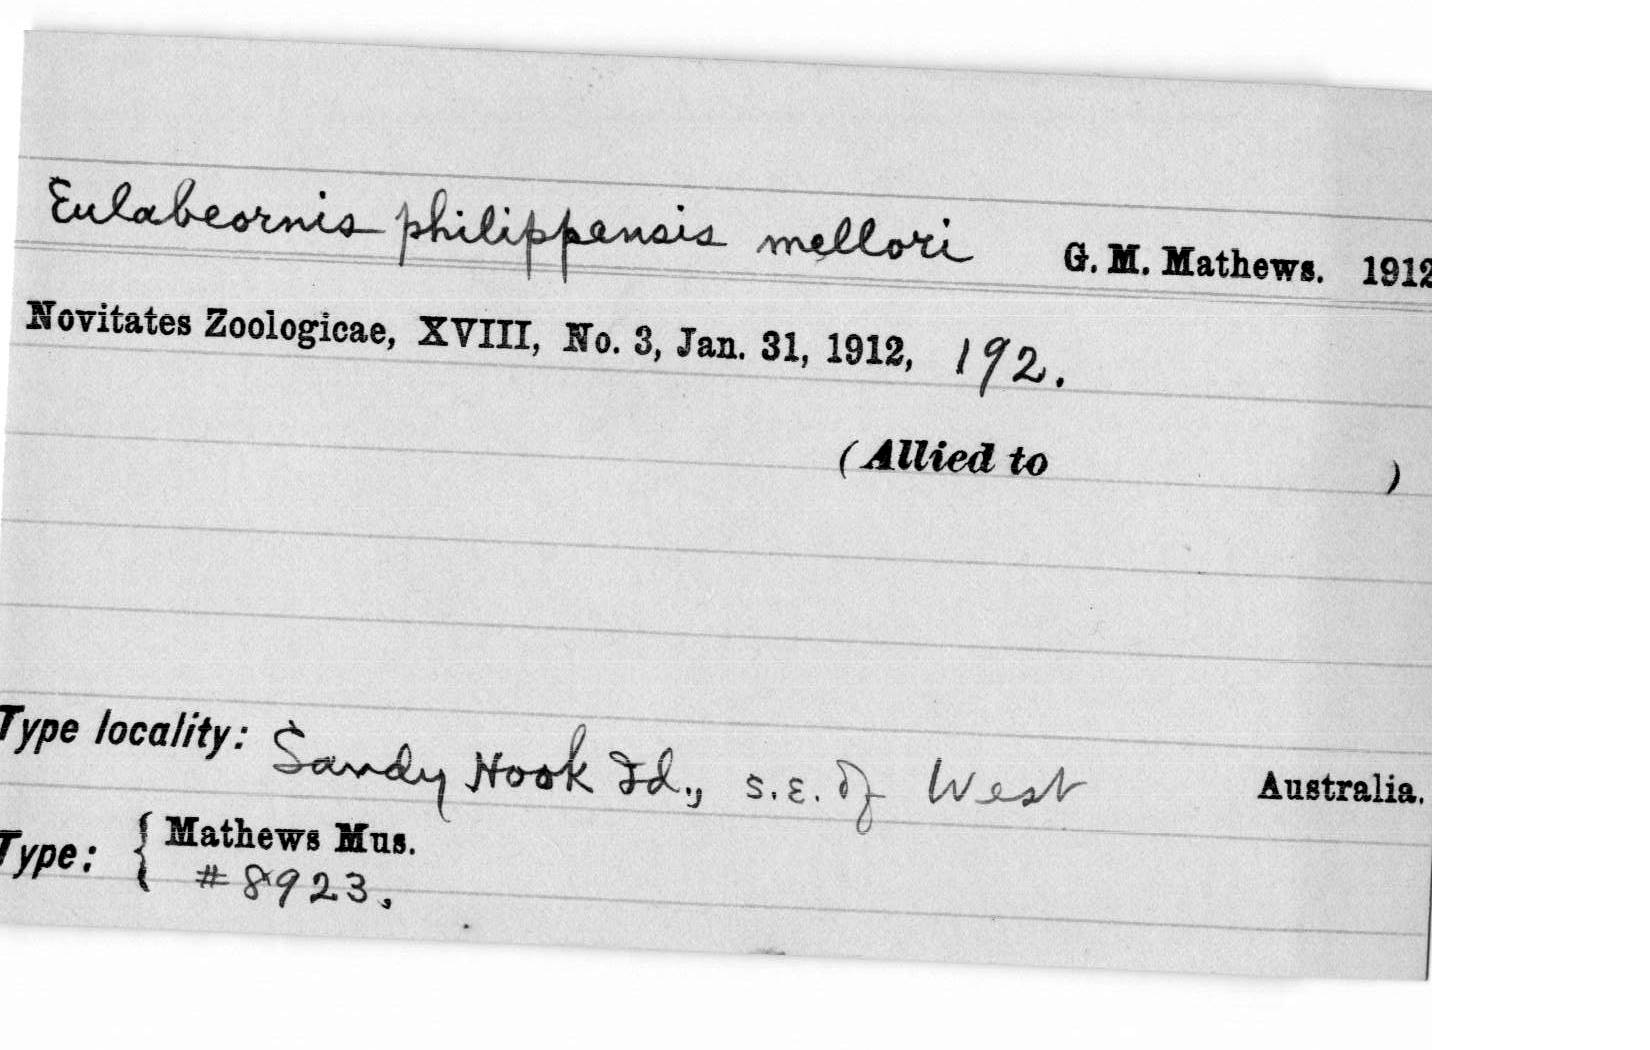 Eulabeornis philippensis mellori G. M. Mathews. 1912
Novitates Zoologicae, XVIII, No. 3, Jan. 31, 1912, 192.
(Allied to )
Type locality: Sandy Hook Id., S.E. of West Australia.
Type: { Mathews Mus.
#8923.